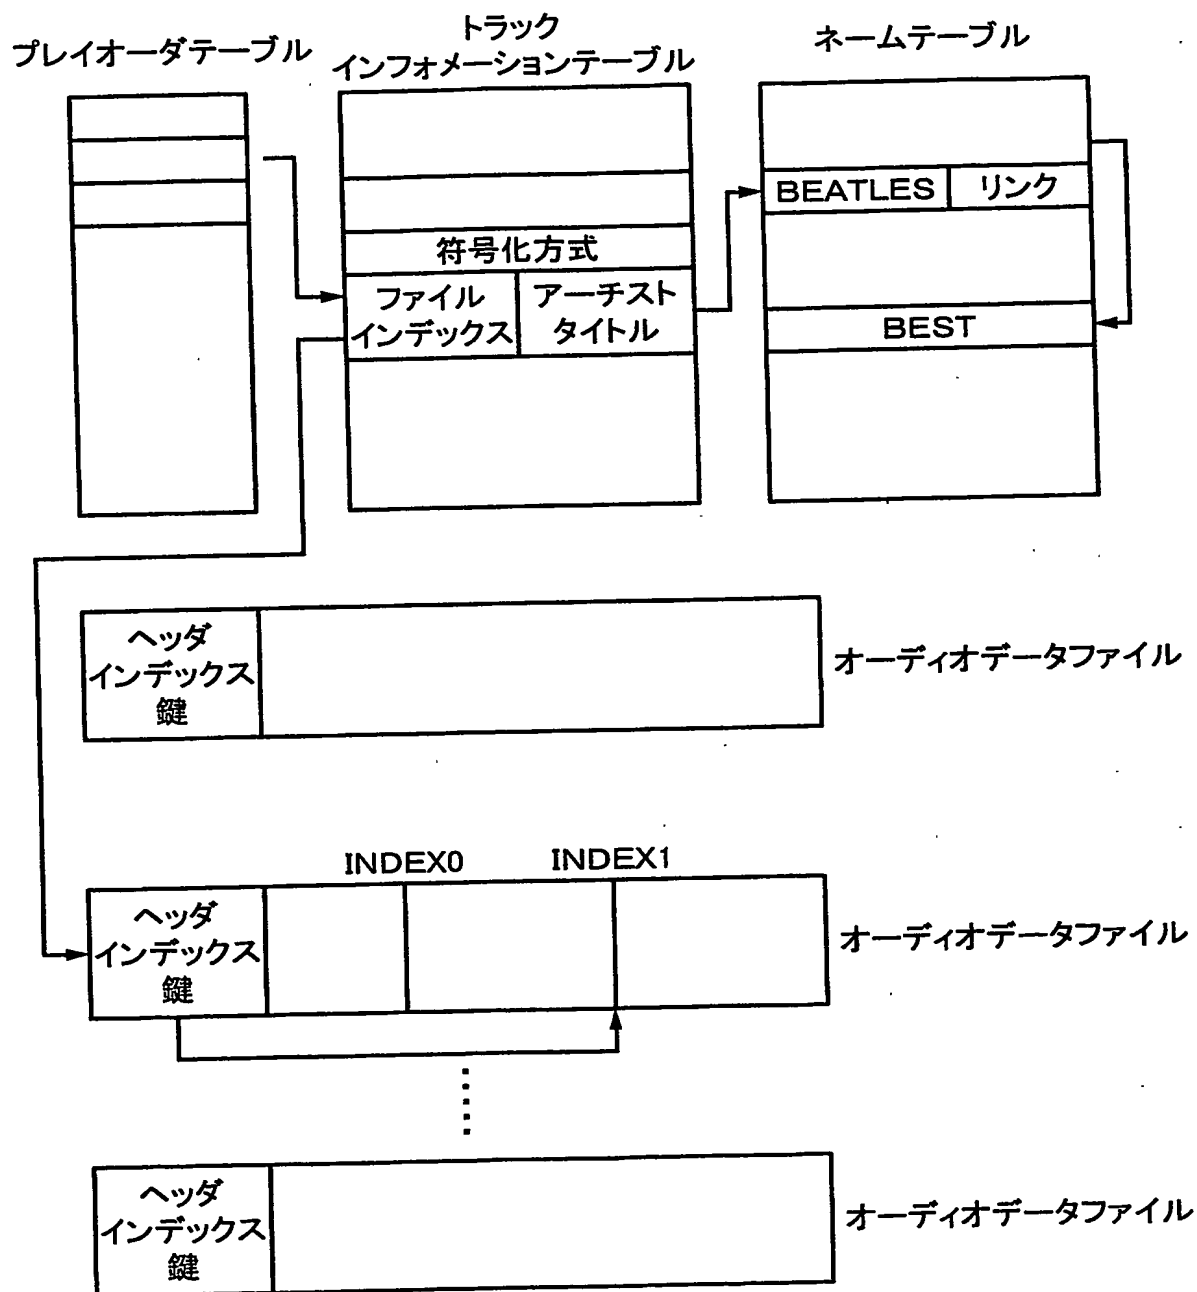 プレイオーダテーブル
トラック
インフォメーションテーブル
ネームテーブル
BEATLES
リンク
符号化方式
ファイル
インデックス
アーチスト
タイトル
BEST
ヘッダ
インデックス
鍵
オーディオデータファイル
INDEX0
INDEX1
ヘッダ
インデックス
鍵
オーディオデータファイル
ヘッダ
インデックス
鍵
オーディオデータファイル